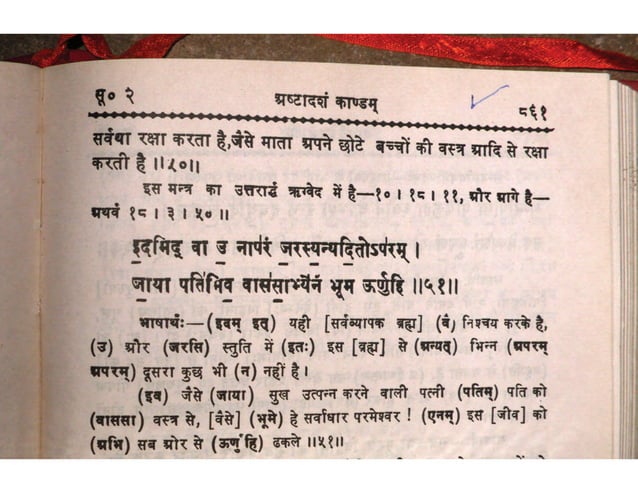 सू० २ अष्टादशं काण्डम् ८६१
सर्वथा रक्षा करता है, जैसे माता अपने छोटे बच्चों की वस्त्र आदि से रक्षा
करती है ॥५०॥
इस मन्त्र का उत्तरार्द्ध ऋग्वेद में है—१० । १८ । ११, और आगे है—
अथर्व १८ । ३ । ५० ॥
इ॒दमिद् वा उ॒ नाप॑रं ज॒रस्य॒न्यदि॒तोऽप॑रम् ।
जा॒या पति॑मिव॒ वास॑सा॒भ्ये॑नं भूम ऊर्णुहि ॥५१॥
भाषार्थः—(इदम् इत्) यही [सर्वव्यापक ब्रह्म] (वै) निश्चय करके है,
(उ) और (जरसि) स्तुति में (इतः) इस [ब्रह्म] से (अन्यत्) भिन्न (अपरम्
अपरम्) दूसरा कुछ भी (न) नहीं है ।
(इव) जैसे (जाया) सुख उत्पन्न करने वाली पत्नी (पतिम्) पति को
(वाससा) वस्त्र से, [वैसे] (भूमे) हे सर्वाधार परमेश्वर ! (एनम्) इस [जीव] को
(अभि) सब ओर से (ऊर्णुहि) ढकले ॥५१॥